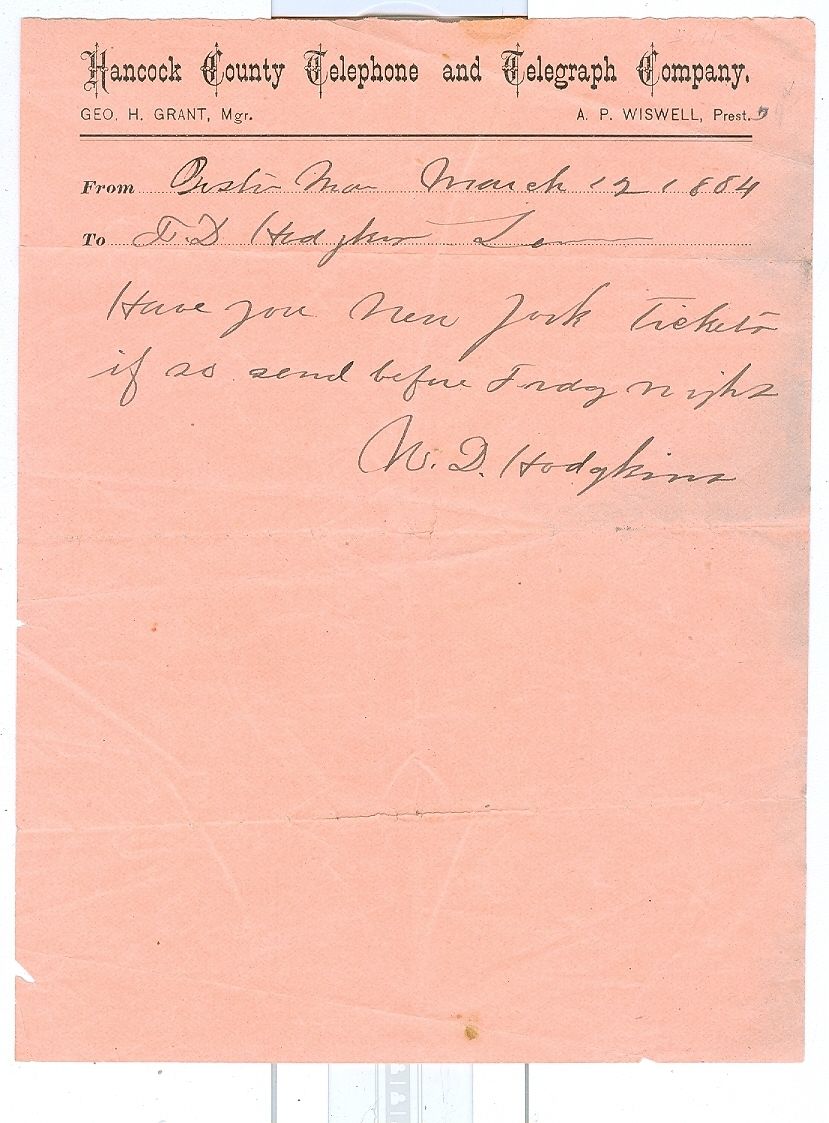 Hancock County Telephone and Telegraph Company.
GEO. H. GRANT, Mgr. A. P. WISWELL, Prest.
From March 12 1884
To F. D Hodgkins
Have you New York Tickets
if so send before Friday night
W. D. Hodgkins